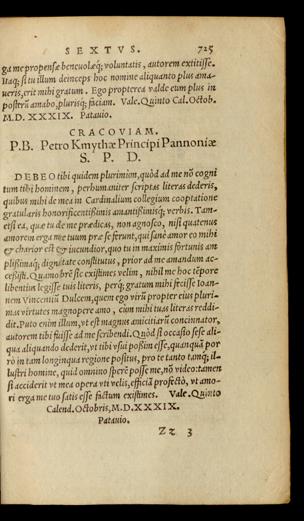 SEXTVS. 725
ga me propensæ beneuolæq; voluntatis, autorem extitisse.
Itaq; si tu illum deinceps hoc nomine aliquanto plus ama-
ueris, erit mihi gratum. Ego propterea valde eum plus in
posterū amabo, plurisq; faciam. Vale. Quinto Cal. Octob.
M.D.XXXIX. Patauio.
CRACOVIAM.
P.B. Petro Kmythæ Principi Pannoniæ
S. P. D.
DEBEO tibi quidem plurimùm, quòd ad me nō cogni
tum tibi hominem, perhumaniter scriptas literas dederis,
quibus mihi de mea in Cardinalium collegium cooptatione
gratularis honorificentißimis amantißimisq; verbis. Tam-
etsi ea, quæ tu de me prædicas, non agnosco, nisi quatenus
amorem erga me tuum præ se ferunt, qui sanè amor eo mihi
& charior est & iucundior, quo tu in maximis fortunis am
plißimaq; dignitate constitutus, prior ad me amandum ac-
ceßisti. Quamobrē sic existimes velim, nihil me hoc tēpore
libentius legisse tuis literis, perq; gratum mihi fecisse Ioan-
nem Vincentiū Dulcem, quem ego virū propter eius pluri-
mas virtutes magnopere amo, cum mihi tuas literas reddi-
dit. Puto enim illum, vt est magnus amicitiarū concinnator,
autorem tibi fuisse ad me scribendi. Quòd si occasio sese ali-
qua aliquando dederit, vt tibi vsui poßim esse, quanquā por
rò in tam longinqua regione positus, pro te tanto tamq; il-
lustri homine, quid omnino sperē posse me, nō video: tamen
si acciderit vt mea opera vti velis, efficiā profectò, vt amo-
ri erga me tuo satis esse factum existimes. Vale. Quinto
Calend. Octobris, M.D.XXXIX.
Patauio.
Zz 3